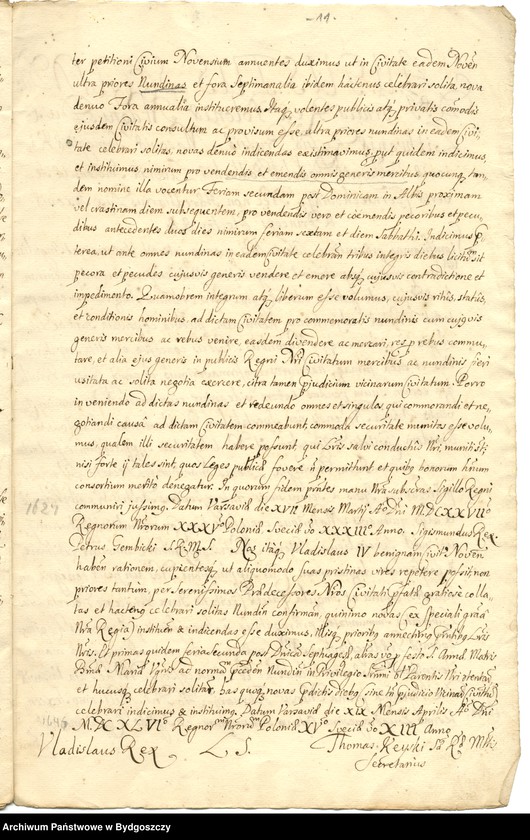 44.
ter petitioni Civium Novensium annuentes duximus ut in Civitate eadem Noven
ultra priores Nundinas et fora Septimanalia ibidem hactenus celebrari solita, nova
denuo Fora annualia institueremus. Itaq volentes publicis atq privatis comodis
ejusdem Civitatis consultum ac provisum esse, ultra priores nundinas in eadem Civi,
tate celebrari solitas, novas denuo indicendas existimavimus, put quidem indicimus,
et instituimus, nimirum pro vendendis et emendis omnis generis mercibus quocunq tan,
dem nomine illa vocentur Feriam secundam post Dominicam in Albis proximam
vel crastinam diem subsequentem, pro vendendis vero et coemendis pecoribus et pecu,
dibus antecedentes duos dies nimirum feriam sextam et diem Sabbathi. Indicimus p
terea, ut ante omnes nundinas in eadem Civitate celebran tribus integris diebus licitum sit
pecora et pecudes cujusvis generis vendere et emere absq cujusvis contradictione et
impedimento. Quamobrem integrum atq liberum esse volumus, cujusvis ritus, status,
et conditionis hominibus, ad dictam Civitatem pro commemoratis nundinis cum cujusvis
generis mercibus ac rebus venire, easdem divendere ac mercari, res p rebus commu,
tare, et alia ejus generis in publicis Regni Nri Civitatum mercibus ac nundinis fieri
usitata ac solita negotia exercere, citra tamen pjudicium vicinarum Civitatum. Porro
in veniendo ad dictas nundinas et redeundo omnes et singulos qui commorandi et ne,
gotiandi causa ad dictam Civitatem commeabunt, commoda securitate munitos esse volu,
mus, qualem illi securitatem habere possunt, qui Lris salvi conductus Nri, muniti st
nisi forte ij tales sint, quos Leges publica fovere n permittunt et quibq bonorum hnum
consortium merito denegatur. In quorum fidem pntes manu Nra subscras Sigillo Regni
1627
communiri jussimq. Datum Varsavia die XVII Mensis Martij Ao Dni MDCXXVIIo
Regnorum Nrorum XXXXo Polonia, Suecia vo XXXIIIo Anno. Sigismundus Rex
Petrus Gembicki S.R.M.S. Nos itaq Vladislaus IV benignam Noven
haben rationem, cupientesq, ut aliquomodo suas pristinas vires repetere possit, non
priores tantum, per Serenissimos Pradecessores Nros Civitati pfata gratiose colla,
tas et hactenq celebrari solitas Nundin confirman, quinimo novas (ex speciali gra
Nra Regia) instituen & indicendas esse duximus, illisq prioribq
Nris. Et primas quidem feria secunda post Dnicam Septuages, altas vo p festo S. Anna Matris
Maria ad normam Nundin in Privilegio Parentis Nri
et hucusq celebrari solitar has quoq novas pdictis diebq sine in pjudicio Vicinar Civitatum
1646
celebrari indicimus & instituimq. Datum Varsavia die XIX Mensis Aprilis Ao Dni
MDCXLVIo Regnor Nrorum Polonia XVo Suecia vo XIIIo Anno
Vladislaus Rex L. S. Thomas Ujeyski Sa Ra Mtis
Secretarius
Archiwum Państwowe w Bydgoszczy